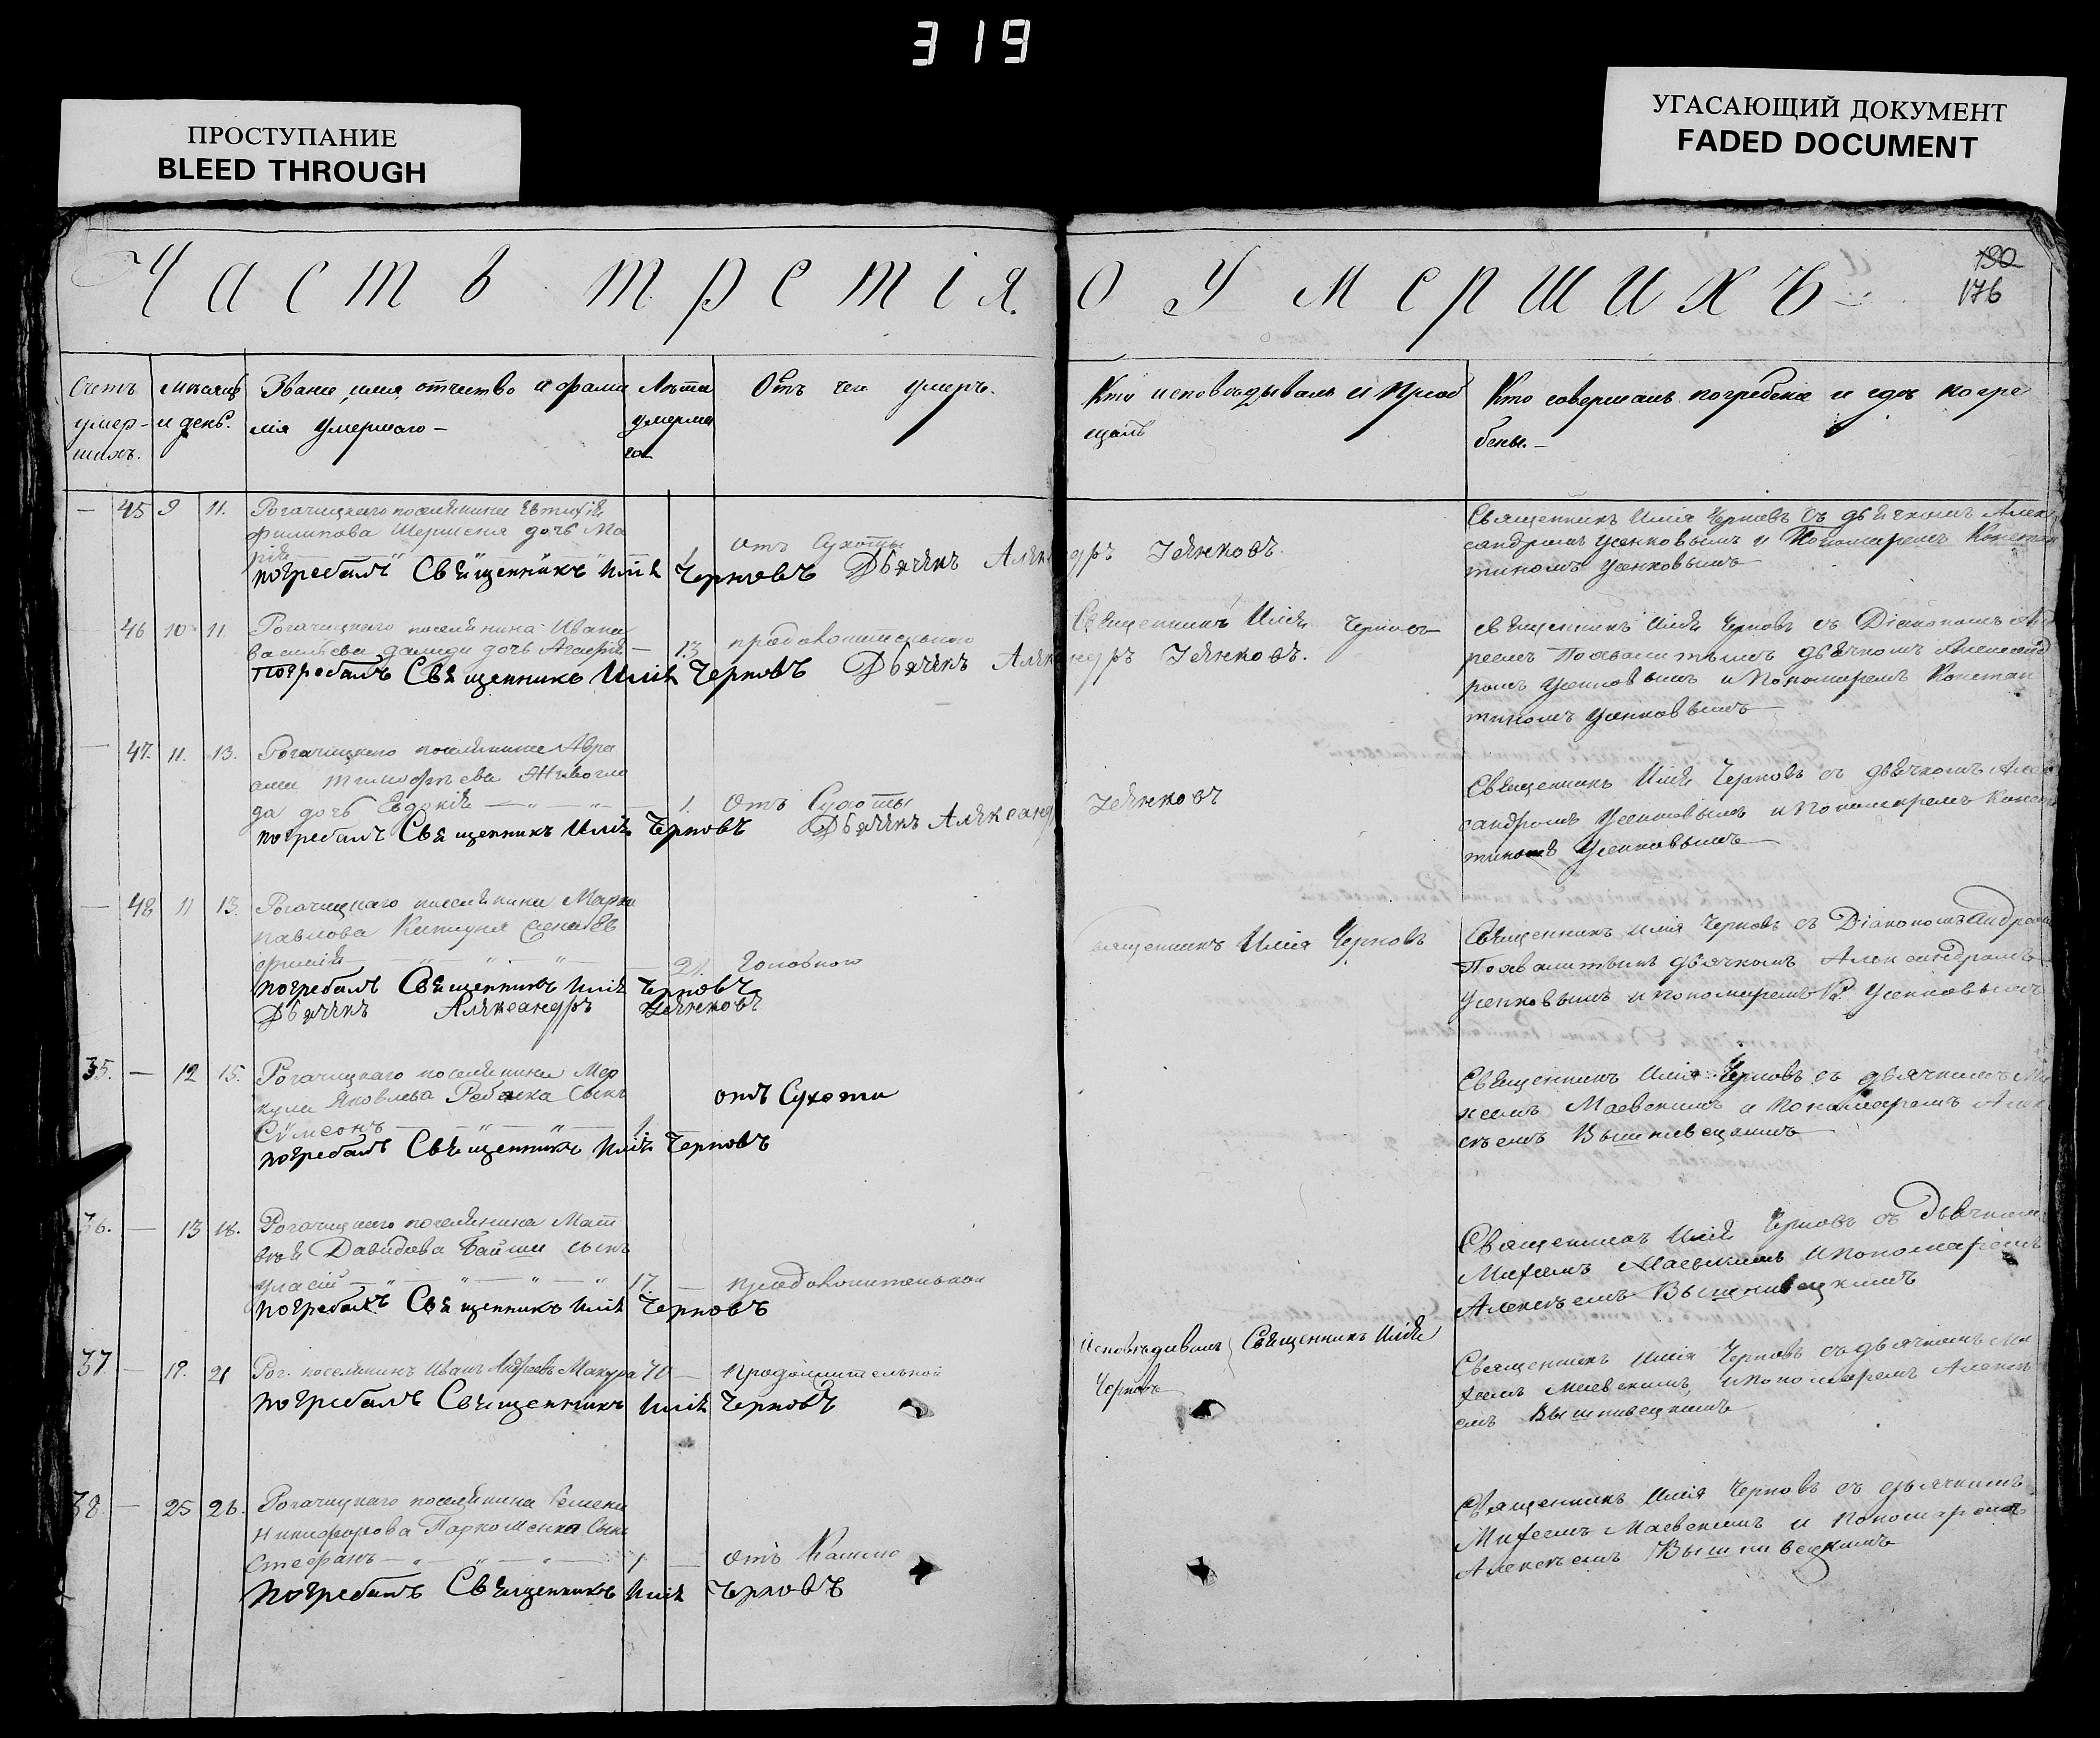 319
ПРОСТУПАНИЕ
BLEED THROUGH
УГАСАЮЩИЙ ДОКУМЕНТ
FADED DOCUMENT
Часть третія о Умершихъ
190
176
Счетъ умер-шихъ.
мѣсяцъ и день.
Званіе, имя, отчество и фами
лія умершаго
Лѣта умерша го
Отъ чего умеръ.
Кто исповѣдывалъ и пріоб
щалъ
Кто совершалъ погребеніе и гдѣ погре
бены.
45 9 11. Рогачицкаго поселянина Евтихія
филипова Шермена дочь Ма
рія 1 отъ Сухоты
погребалъ Священникъ Илія Черновъ Дьячекъ Александръ Усенковъ.
Священникъ Илія Черновъ съ дьячкомъ Алек
сандромъ Усенковымъ и Пономаремъ Констан
тиномъ Усенковымъ
46 10 11. Рогачицкаго поселянина Ивана
васильева дочь Агафія 13
погребалъ Священникъ Илія Черновъ Дьячекъ Александръ Усенковъ.
Священникъ Илія Черновъ
священникъ Илія Черновъ съ Діакономъ Анд
реемъ дьячкомъ Александ
ромъ Усенковымъ и Пономаремъ Констан
тиномъ Усенковымъ
47. 11. 13. Рогачицкаго поселянина Авра
ама тимофѣева Живогля
да дочь Евдокія 1. Отъ Сухоты
погребалъ Священникъ Илія Черновъ Дьячекъ Александръ Усенковъ
Священникъ Илія Черновъ съ дьячкомъ Алек
сандромъ Усенковымъ и Пономаремъ Констан
тиномъ Усенковымъ
48 11 13. Рогачицкаго поселянина Марка
павлова жена Ев
фимія 21.
погребалъ Священникъ Илія Черновъ
Дьячекъ Александръ Усенковъ
Священникъ Илія Черновъ
Священникъ Илія Черновъ съ Діакономъ Андреемъ
дьячкомъ Александромъ
Усенковымъ и пономаремъ К. Усенковымъ
35. 12 15. Рогачицкаго поселянина Мер
кула Яковлева Ребенка Сынъ
Сѵмеонъ 1. отъ Сухоти
погребалъ Священникъ Илія Черновъ
Священникъ Илія Черновъ съ дьячкомъ Ми
хеемъ Маевскимъ и Пономаремъ Алек
сѣемъ Вышневецкимъ
36. 13 18. Рогачицкаго поселянина Мат
вѣя Давидова сынъ
17. продолжительной
погребалъ Священникъ Илія Черновъ
Священникъ Илія Черновъ съ Дьячкомъ
Михеемъ Маевскимъ и пономаремъ
Алексѣемъ Вышневецкимъ
37 19. 21 Рог. поселянинъ Иванъ Андреевъ Макура 70 продолжительной
погребалъ Священникъ Илія Черновъ
Исповѣдывалъ Священникъ Илія
Черновъ
Священникъ Илія Черновъ съ дьячкомъ Ми
хеемъ Маевскимъ, и пономаремъ Алексѣ
емъ Вышневецкимъ
38. 25 26. Рогачицкаго поселянина Семена
Никифорова Пархоменка Сынъ
Стефанъ 1. отъ Кашлю
погребалъ Священникъ Илія Черновъ
Священникъ Илія Черновъ съ дьячкомъ
Михеемъ Маевскимъ и Пономаремъ
Алексѣемъ Вышневецкимъ